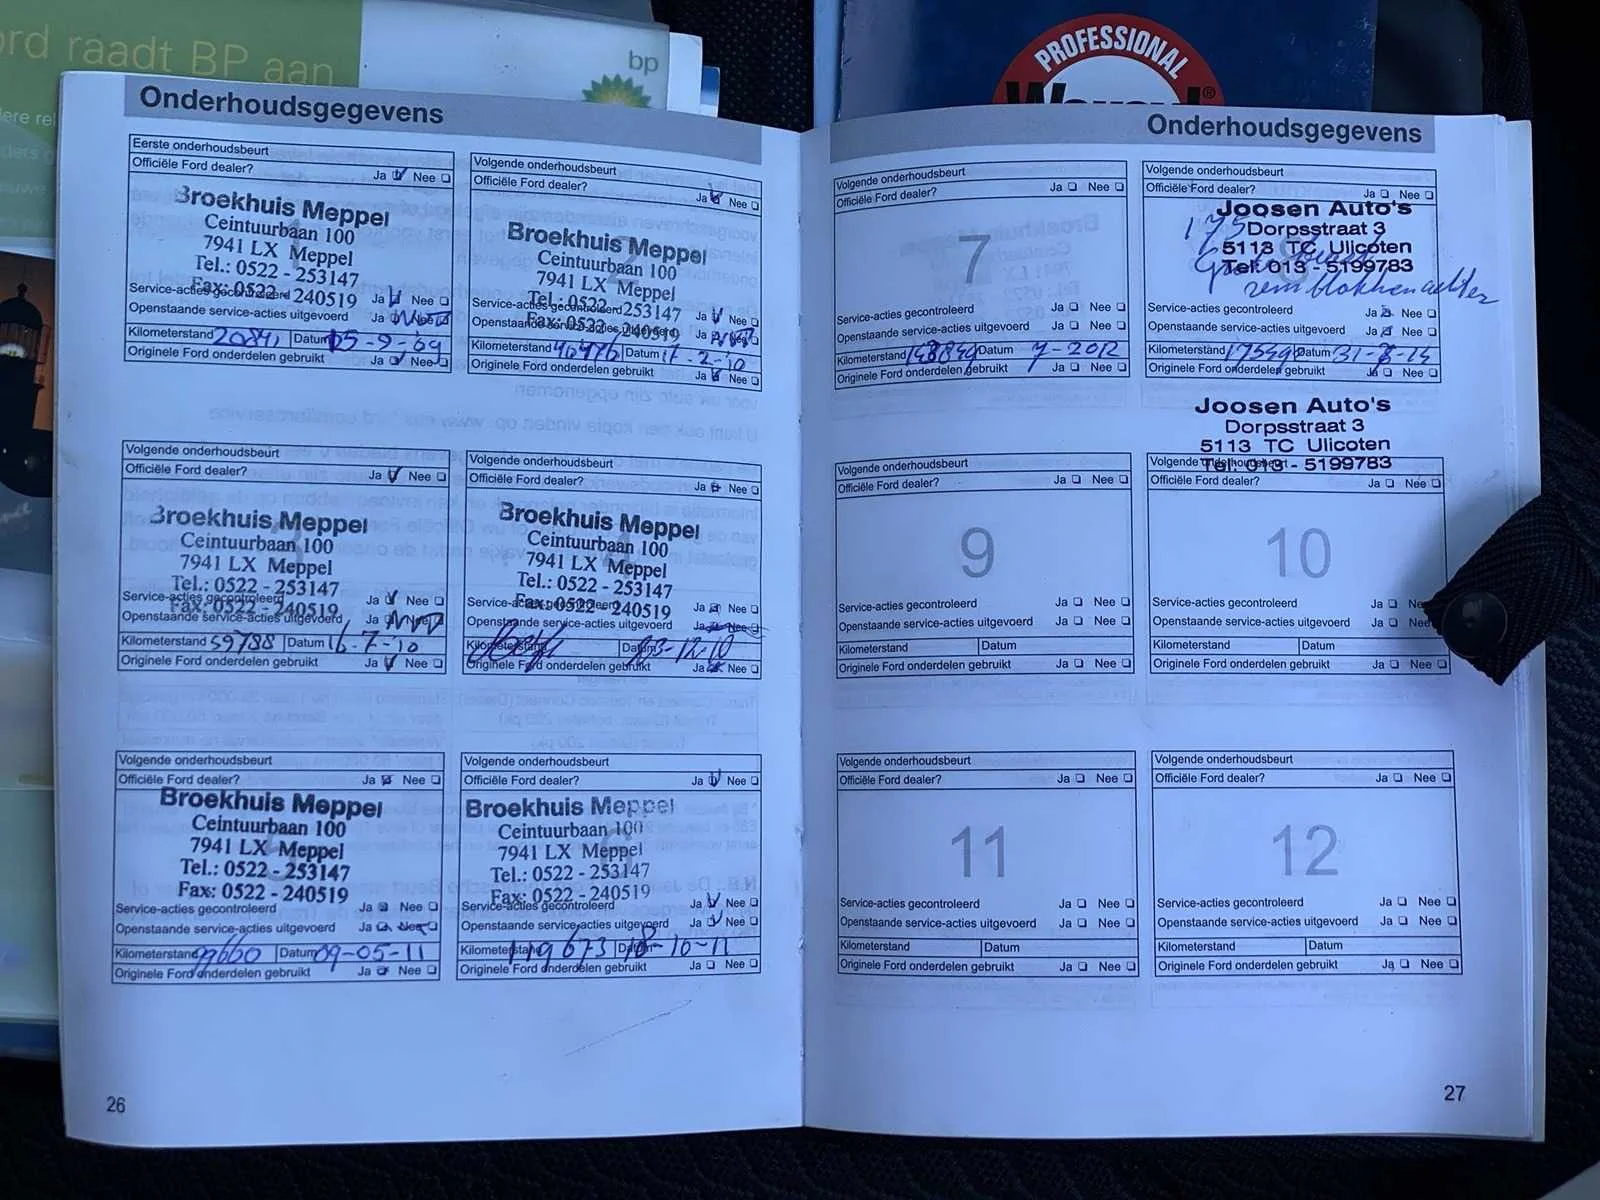 ord raadt BP aan
bp
PROFESSIONAL
Onderhoudsgegevens
Eerste onderhoudsbeurt
Officiële Ford dealer? Ja Nee
Broekhuis Meppel
Ceintuurbaan 100
7941 LX Meppel
Tel.: 0522 - 253147
Fax: 0522 - 240519
Service-acties gecontroleerd Ja Nee
Openstaande service-acties uitgevoerd Ja Nee
Kilometerstand Datum 05-9-09
Originele Ford onderdelen gebruikt Ja Nee
Volgende onderhoudsbeurt
Officiële Ford dealer? Ja Nee
Broekhuis Meppel
Ceintuurbaan 100
7941 LX Meppel
Tel.: 0522 - 253147
Fax: 0522 - 240519
Service-acties gecontroleerd Ja Nee
Openstaande service-acties uitgevoerd Ja Nee
Kilometerstand 40476 Datum
Originele Ford onderdelen gebruikt Ja Nee
Volgende onderhoudsbeurt
Officiële Ford dealer? Ja Nee
Broekhuis Meppel
Ceintuurbaan 100
7941 LX Meppel
Tel.: 0522 - 253147
Fax: 0522 - 240519
Service-acties gecontroleerd Ja Nee
Openstaande service-acties uitgevoerd Ja Nee
Kilometerstand 59788 Datum 16-7-'10
Originele Ford onderdelen gebruikt Ja Nee
Volgende onderhoudsbeurt
Officiële Ford dealer? Ja Nee
Broekhuis Meppel
Ceintuurbaan 100
7941 LX Meppel
Tel.: 0522 - 253147
Fax: 0522 - 240519
Service-acties gecontroleerd Ja Nee
Openstaande service-acties uitgevoerd Ja Nee
Kilometerstand Datum 03-12-10
Originele Ford onderdelen gebruikt Ja Nee
Volgende onderhoudsbeurt
Officiële Ford dealer? Ja Nee
Broekhuis Meppel
Ceintuurbaan 100
7941 LX Meppel
Tel.: 0522 - 253147
Fax: 0522 - 240519
Service-acties gecontroleerd Ja Nee
Openstaande service-acties uitgevoerd Ja Nee
Kilometerstand 99660 Datum 09-05-11
Originele Ford onderdelen gebruikt Ja Nee
Volgende onderhoudsbeurt
Officiële Ford dealer? Ja Nee
Broekhuis Meppel
Ceintuurbaan 100
7941 LX Meppel
Tel.: 0522 - 253147
Fax: 0522 - 240519
Service-acties gecontroleerd Ja Nee
Openstaande service-acties uitgevoerd Ja Nee
Kilometerstand 119673 Datum 18-10-11
Originele Ford onderdelen gebruikt Ja Nee
26
Onderhoudsgegevens
Volgende onderhoudsbeurt
Officiële Ford dealer? Ja Nee
7
Service-acties gecontroleerd Ja Nee
Openstaande service-acties uitgevoerd Ja Nee
Kilometerstand Datum 7-2012
Originele Ford onderdelen gebruikt Ja Nee
Volgende onderhoudsbeurt
Officiële Ford dealer? Ja Nee
Joosen Auto's
175 Dorpsstraat 3
5113 TC Ulicoten
Tel: 013 - 5199783
remblokken achter
Service-acties gecontroleerd Ja Nee
Openstaande service-acties uitgevoerd Ja Nee
Kilometerstand Datum
Originele Ford onderdelen gebruikt Ja Nee
Joosen Auto's
Dorpsstraat 3
5113 TC Ulicoten
Tel: 013 - 5199783
Volgende onderhoudsbeurt
Officiële Ford dealer? Ja Nee
9
Service-acties gecontroleerd Ja Nee
Openstaande service-acties uitgevoerd Ja Nee
Kilometerstand Datum
Originele Ford onderdelen gebruikt Ja Nee
Volgende onderhoudsbeurt
Officiële Ford dealer? Ja Nee
10
Service-acties gecontroleerd Ja Ne
Openstaande service-acties uitgevoerd Ja Nee
Kilometerstand Datum
Originele Ford onderdelen gebruikt Ja Nee
Volgende onderhoudsbeurt
Officiële Ford dealer? Ja Nee
11
Service-acties gecontroleerd Ja Nee
Openstaande service-acties uitgevoerd Ja Nee
Kilometerstand Datum
Originele Ford onderdelen gebruikt Ja Nee
Volgende onderhoudsbeurt
Officiële Ford dealer? Ja Nee
12
Service-acties gecontroleerd Ja Nee
Openstaande service-acties uitgevoerd Ja Nee
Kilometerstand Datum
Originele Ford onderdelen gebruikt Ja Nee
27